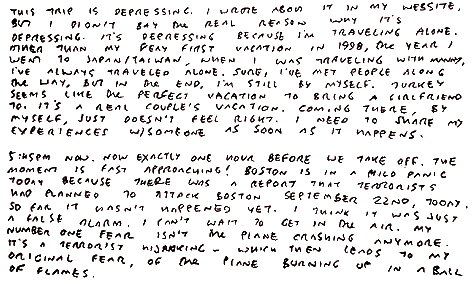 THIS TRIP IS DEPRESSING. I WROTE ABOUT IT IN MY WEBSITE,
BUT I DIDN'T SAY THE REAL REASON WHY IT'S
DEPRESSING. IT'S DEPRESSING BECAUSE I'M TRAVELING ALONE.
OTHER THAN MY VERY FIRST VACATION IN 1998, THE YEAR I
WENT TO JAPAN/TAIWAN, WHEN I WAS TRAVELING WITH
I'VE ALWAYS TRAVELED ALONE. SURE, I'VE MET PEOPLE ALONG
THE WAY, BUT IN THE END, I'M STILL BY MYSELF. TURKEY
SEEMS LIKE THE PERFECT VACATION TO BRING A GIRLFRIEND
TO. IT'S A REAL COUPLE'S VACATION. COMING THERE, BY
MYSELF, JUST DOESN'T FEEL RIGHT. I NEED TO SHARE MY
EXPERIENCES W/SOMEONE AS SOON AS IT HAPPENS.
5:45PM NOW. NOW EXACTLY ONE HOUR BEFORE WE TAKE OFF. THE
MOMENT IS FAST APPROACHING! BOSTON IS IN A MILD PANIC
TODAY BECAUSE THERE WAS A REPORT THAT TERRORISTS
HAD PLANNED TO ATTACK BOSTON SEPTEMBER 22ND, TODAY.
SO FAR IT HASN'T HAPPENED YET. I THINK IT WAS JUST
A FALSE ALARM. I CAN'T WAIT TO GET IN THE AIR. MY
NUMBER ONE FEAR ISN'T THE PLANE CRASHING ANYMORE.
IT'S A TERRORIST HIJACKING - WHICH THEN LEADS TO MY
ORIGINAL FEAR, OF THE PLANE BURNING UP IN A BALL
OF FLAMES.